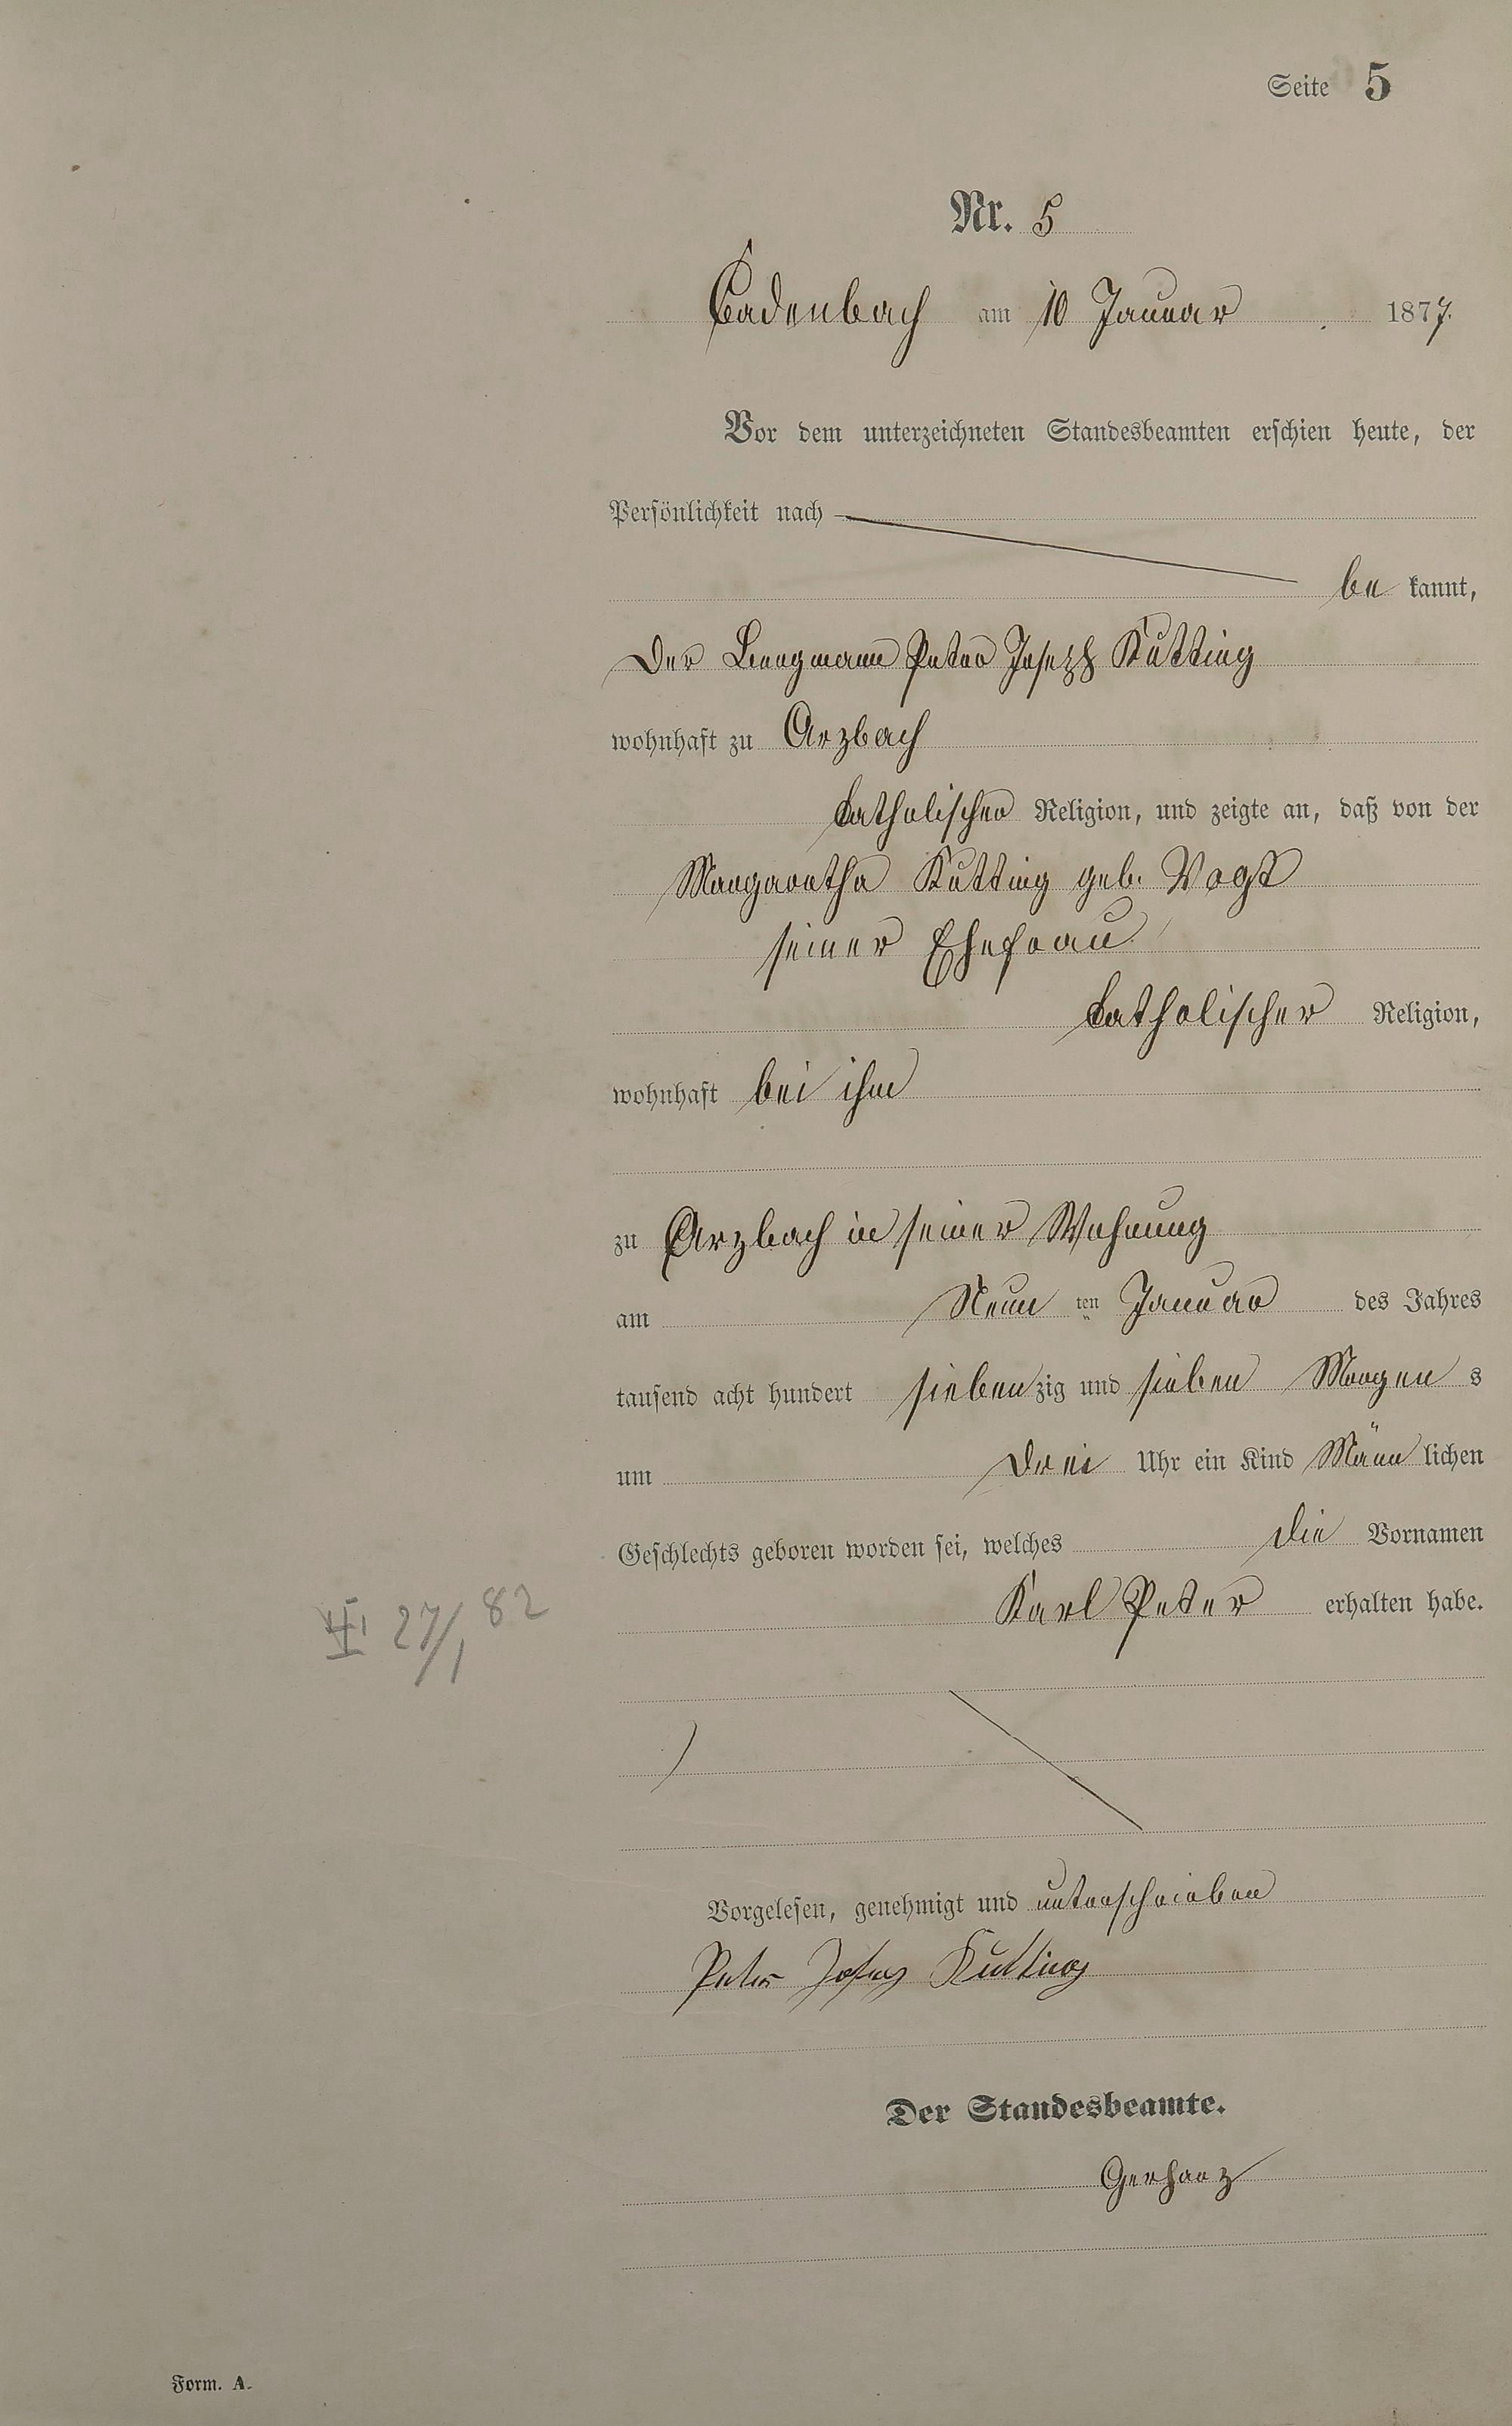 Seite 5
Nr. 5
Cadenbach am 10 Januar 1877.
Vor dem unterzeichneten Standesbeamten erschien heute, der
Persönlichkeit nach
be kannt,
der Bergmann Peter Joseph Kutting
wohnhaft zu Arzbach
katholischer Religion, und zeigte an, daß von der
Margaretha Kutting geb. Vogt
seiner Ehefrau
katholischer Religion,
wohnhaft bei ihm
zu Arzbach in seiner Wohnung
am Neun ten Januar des Jahres
tausend acht hundert siebenzig und sieben Morgen s
um drei Uhr ein Kind Männ lichen
Geschlechts geboren worden sei, welches die Vornamen
Karl Peter erhalten habe.
27/1 82
Vorgelesen, genehmigt und unterschrieben
Peter Josef Kutting
Der Standesbeamte.
Gerharz
Form. A.